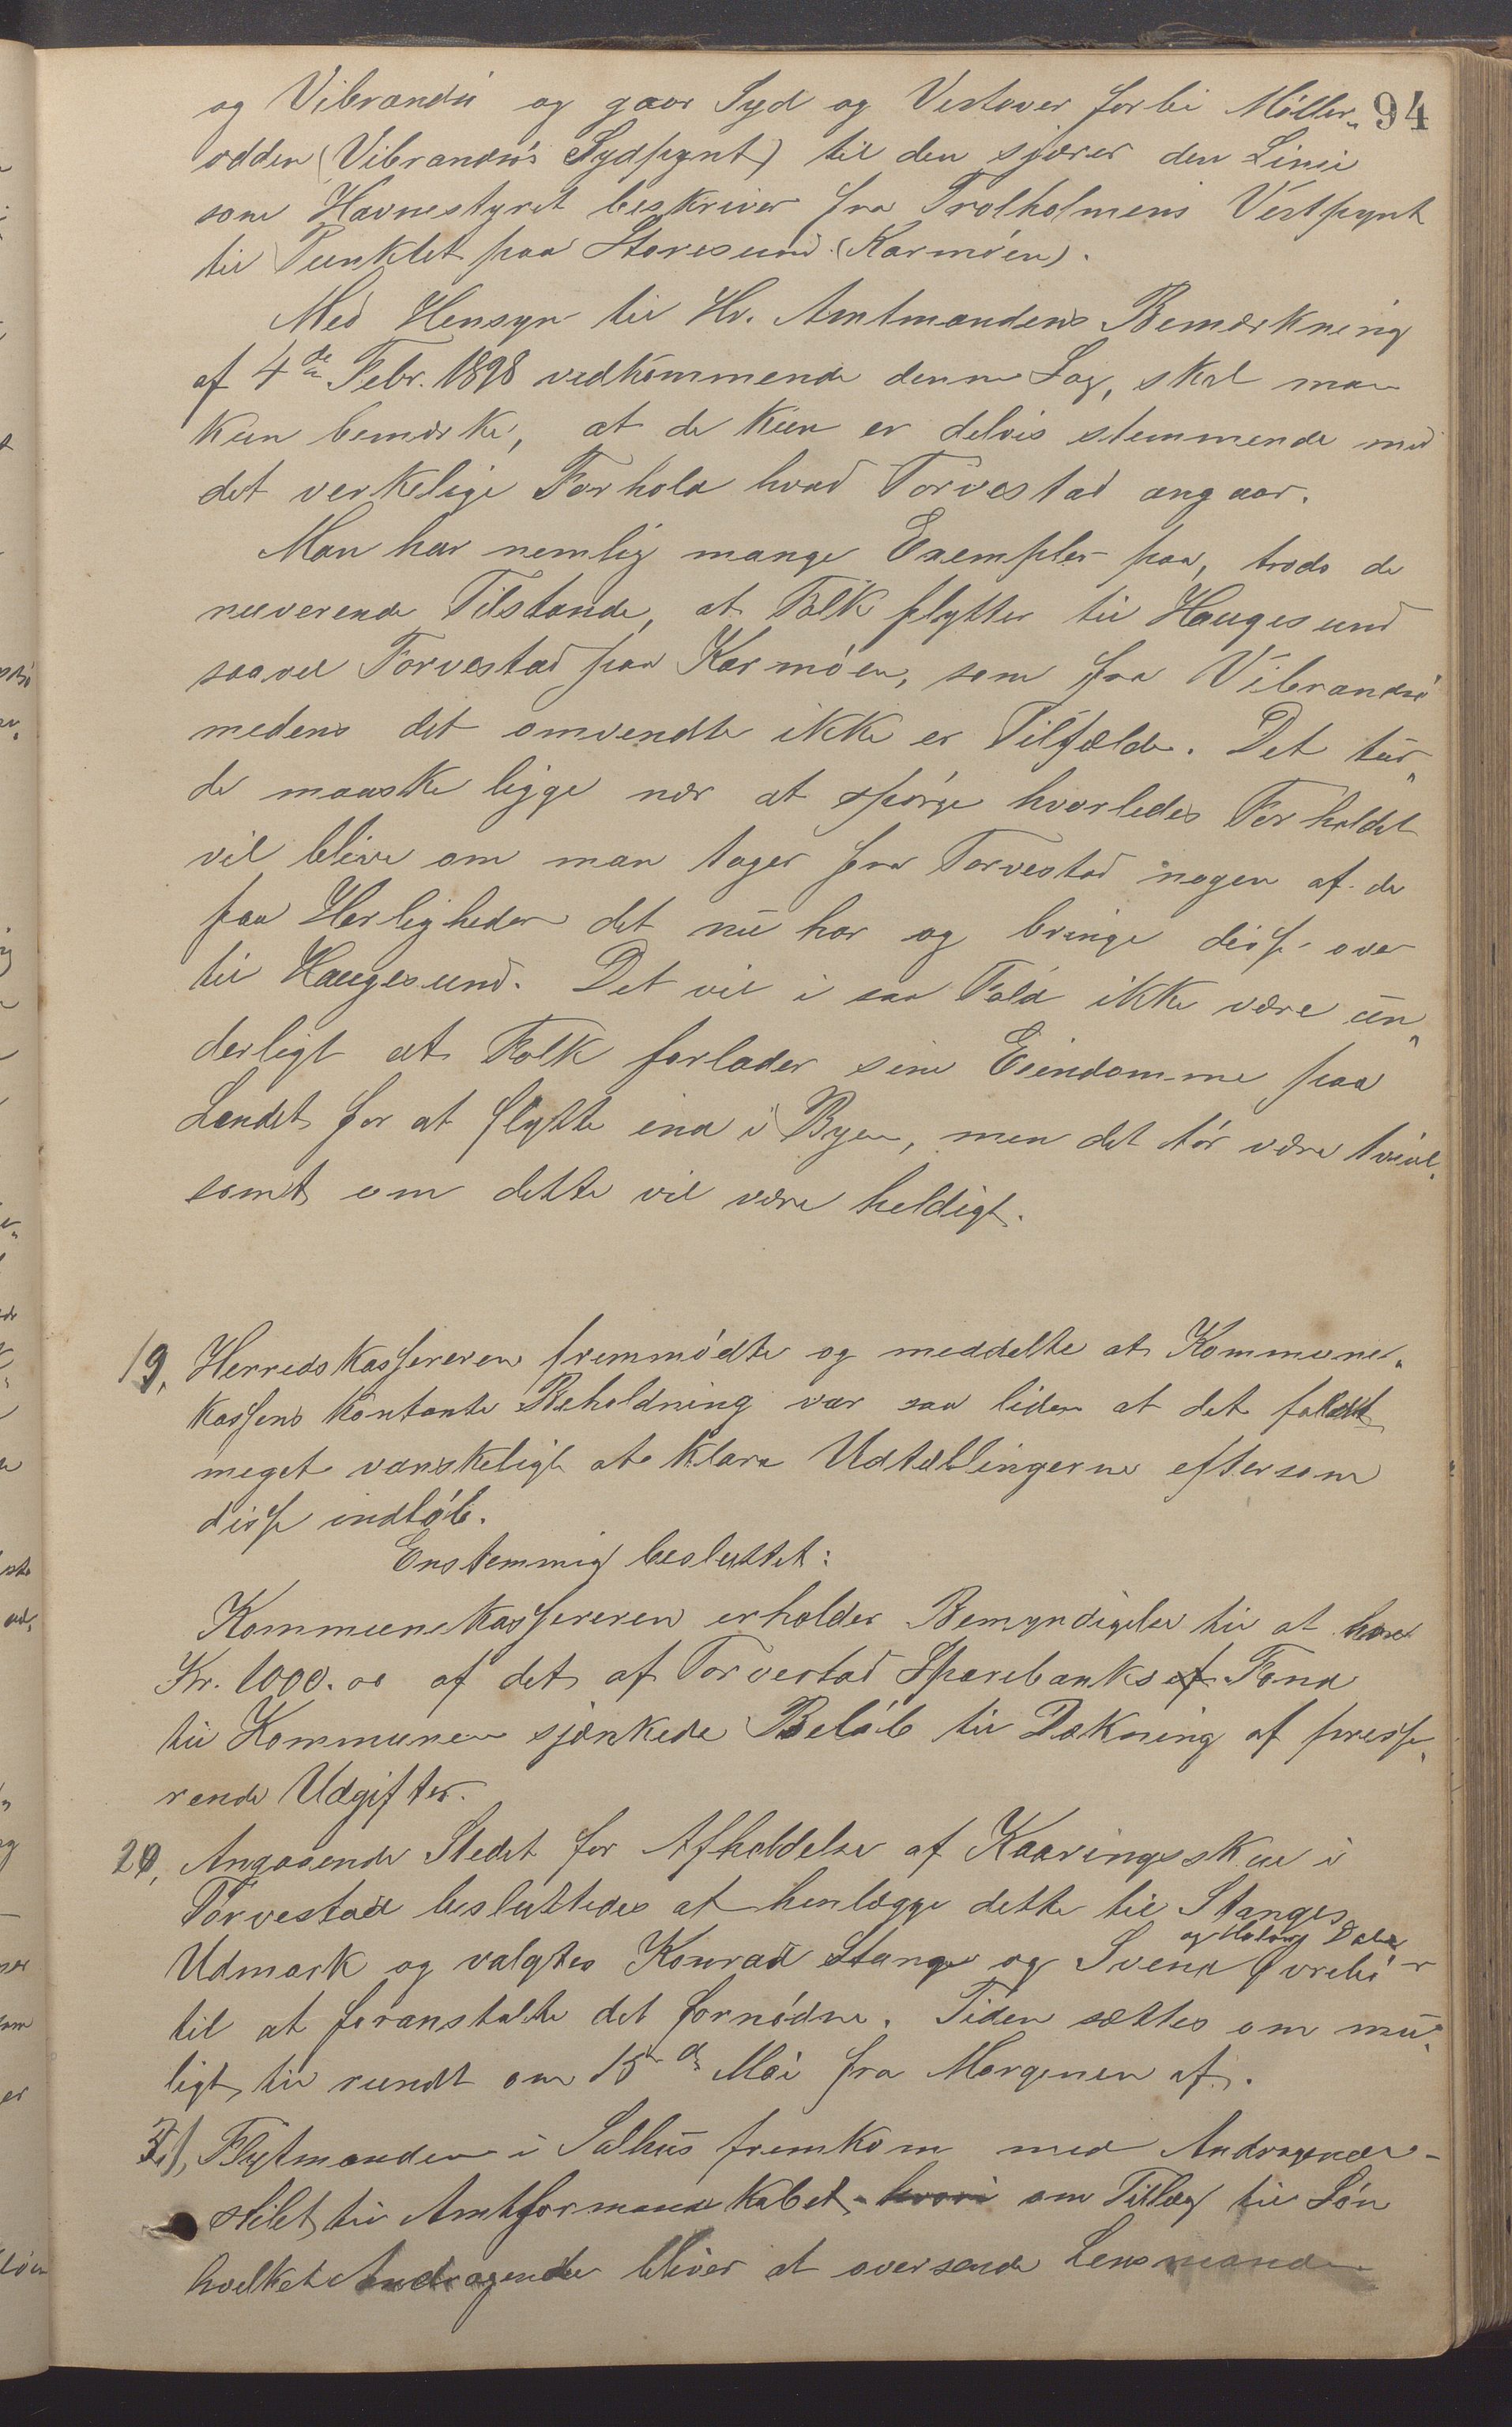 og Vibrandsö og gaar Syd og Vestover forbi Möller„ 94
odden (Vibrandsö's Sydpynt) til den sjærer den Linie
som Havnestyret beskriver fra Trolholmens Vestpynt
til Punktet paa Storesund (Karmöen).
Med Hensyn til Hr. Amtmandens Bemærkning
af 4de Febr. 1898 vedkommende denne Sag, skal man
kun bemærke, at de kun er delvis stemmende med
det verkelige Forhold hvad Torvestad angaar.
Man har nemlig mange Exempler paa, trods de
nuverende Tilstande, at Folk flytter til Haugesund
saavel Torvestad paa Karmöen, som fra Vibrandsö
medens det omvendte ikke er Tilfælde. Det tür„
de maaske ligge nær at spörge hvorledes Forholdet
vil blive om man tager fra Torvestad nogen af de
faa Herligheder det nu har og bringe disse over
til Haugesund. Det vil i saa Fald ikke være un„
derligt at Folk forlader sine Eiendomme paa
Landet for at flytte ind i Byen, men det tör være tvivl„
somt om dette vil være heldigt.
19, Herredskassereren fremmödte og meddelte at Kommune„
kassens kontante Beholdning var saa liden at det faldt
meget vanskeligt at klare Udtællingerne eftersom
disse indlöb.
Enstemmig besluttet:
Kommunekassereren erholder Bemyndigelse til at hæve
Kr. 1000.00 af det af Torvestad Sparebanks af Fond
til Kommunen sjænkede Belöb til Dækning af presse„
rende Udgifter.
20, Angaaende Stedet for Afholdelse af Kaaringsskue i
Torvestad besluttedes at henlægge dette til Stanges
og Dale
Udmark og valgtes Konrad Stange og Svend
til at foranstalte det fornödne. Tiden sættes om mu„
ligt til rundt om 15de Mai fra Morgenen af.
21, Flytmanden i Salhus fremkom med Andragende
stilet til Amtformandskabet hvori om Tillæg til Lön
hvilket Andragende bliver at oversende Lensmanden